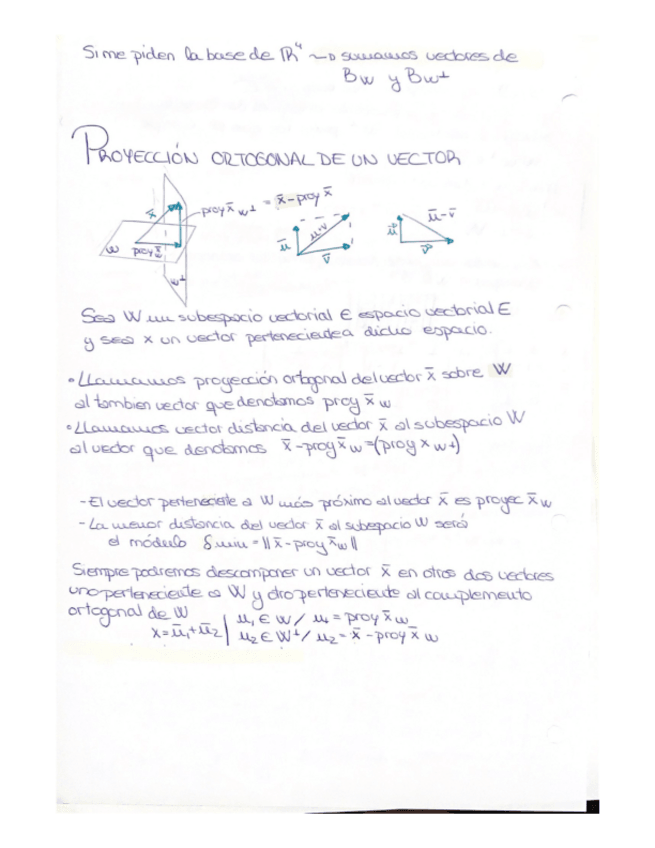 Si me piden la base de ℝ⁴ ~→ sumamos vectores de
Bw y Bw⊥
PROYECCIÓN ORTOGONAL DE UN VECTOR
x̄ proy x̄ w⊥ = x̄-proy x̄
w proy x̄ w w⊥
ū ū+v̄ v̄
ū ū-v̄ v̄
Sea W un subespacio vectorial ∈ espacio vectorial E
y sea x un vector perteneciente a dicho espacio.
• Llamamos proyección ortogonal del vector x̄ sobre W
al tambien vector que denotamos proy x̄ w
• Llamamos vector distancia del vector x̄ al subespacio W
al vector que denotamos x̄-proy x̄ w =(proy x w⊥)
- El vector perteneciente a W más próximo al vector x̄ es proyec x̄ w
- La menor distancia del vector x̄ al subepacio W será
el módulo δmin = ||x̄-proy x̄ w||
Siempre podremos descomponer un vector x̄ en otros dos vectores
uno perteneciente a W y otro perteneciente al complemento
ortogonal de W
x=ū₁+ū₂ | u₁ ∈ W / u₁ = proy x̄ w
u₂ ∈ W⊥ / u₂ = x̄ - proy x̄ w